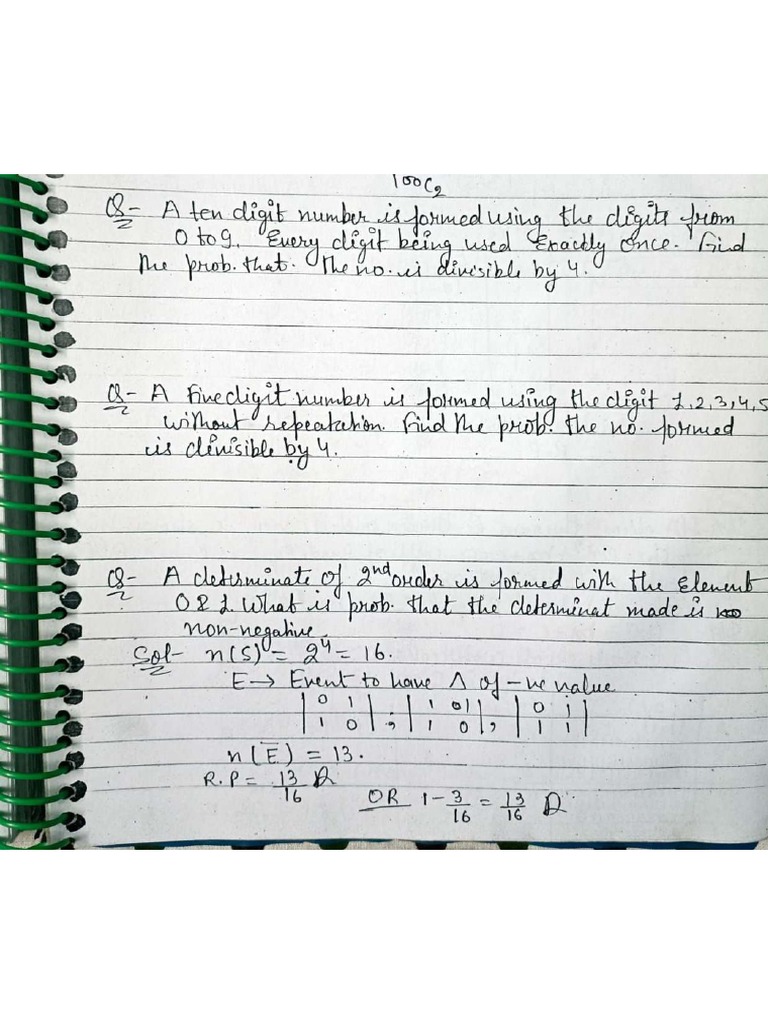 100C2
Q- A ten digit number is formed using the digits from
0 to 9. Every digit being used Exactly Once. Find
the prob. that. The no. is divisible by 4.
Q- A Five digit number is formed using the digit 1,2,3,4,5
without repeatation. Find the prob. the no. formed
is divisible by 4.
Q- A determinate of 2nd order is formed with the Element
0 & 1. What is prob. that the determinat made is
non-negative.
Sol- n(S) = 2^4 = 16.
E → Event to have Δ of -ve value
| 0 1 | , | 1 1 | , | 0 1 |
| 1 0 | | 1 0 | | 1 1 |
n(E̅) = 13.
R.P = 13/16
OR 1 - 3/16 = 13/16